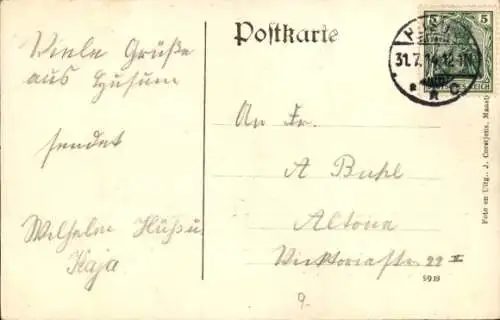 Postkarte
Viele Grüße
aus Husum
sendet
Wilhelm
Kaja
An Fr.
A Buhl
Altona
Viktoriastr. 99 II
5
5
31.7.14.12-1N
C
REICH
5919
9.
Foto en Uitg., J. Corstjens,